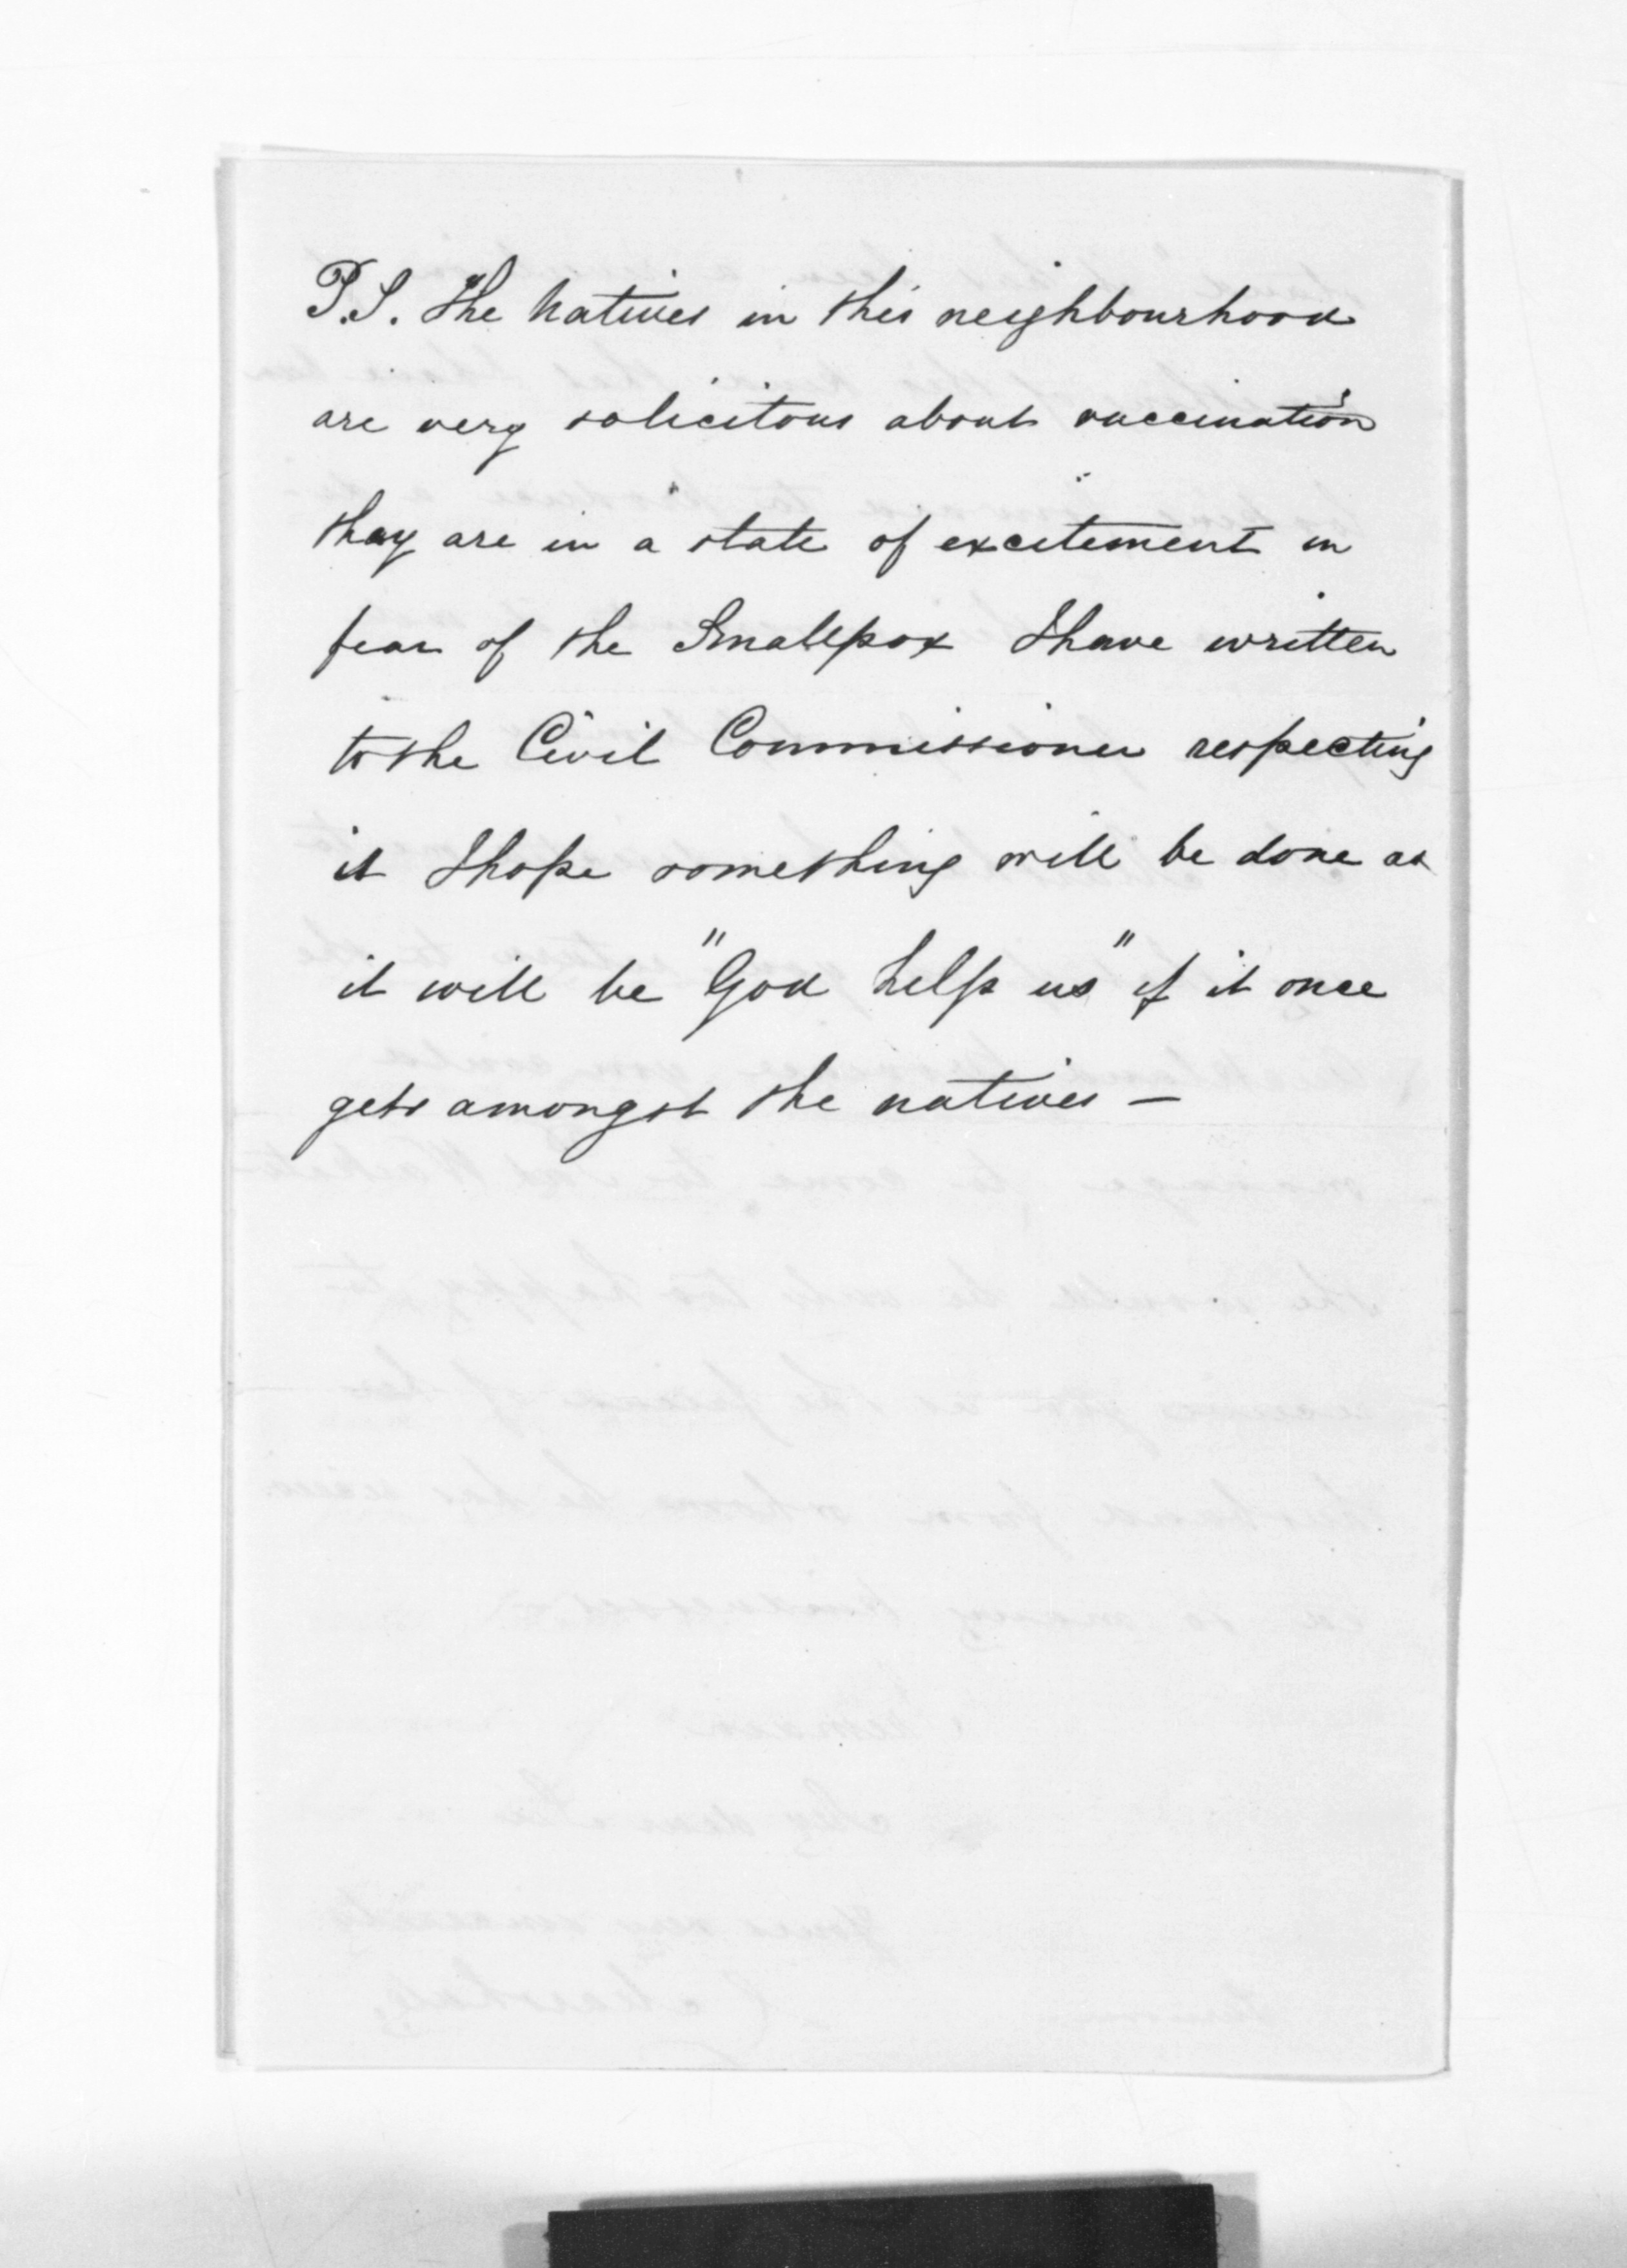 P.S. The Natives in this neighbourhood
are very solicitous about vaccination
they are in a state of excitement in
fear of the Smallpox I have written
to the Civil Commissioner respecting
it I hope something will be done as
it will be "God help us" if it once
gets amongst the natives —